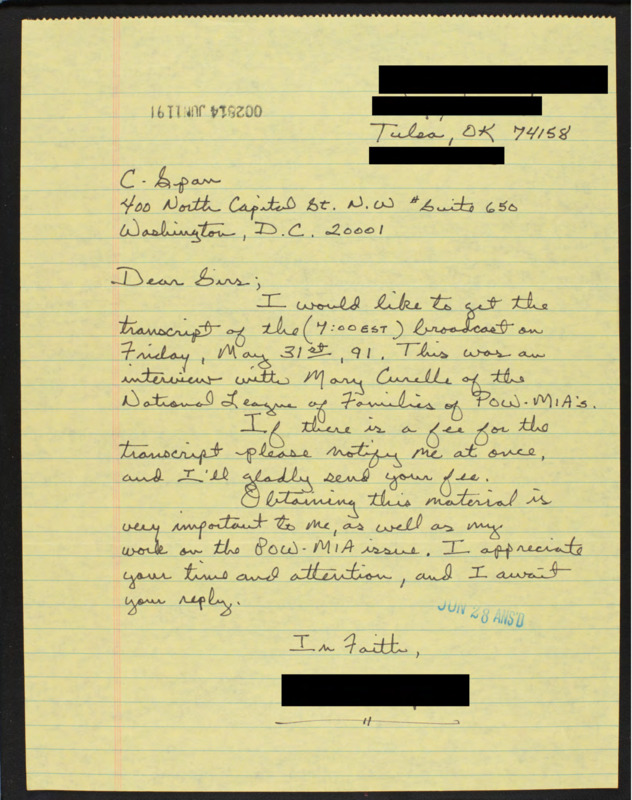 002514 JUN 11 91
Tulsa, OK 74158
C-Span
400 North Capitol St. N.W #Suite 650
Washington, D.C. 20001
Dear Sirs;
I would like to get the
transcript of the (7:00 EST) broadcast on
Friday, May 31st, 91. This was an
interview with Mary Curelle of the
National League of Families of POW-MIA's.
If there is a fee for the
transcript please notify me at once,
and I'll gladly send your fee.
Obtaining this material is
very important to me, as well as my
work on the POW-MIA issue. I appreciate
your time and attention, and I await
your reply.
JUN 28 ANS'D
In Faith,